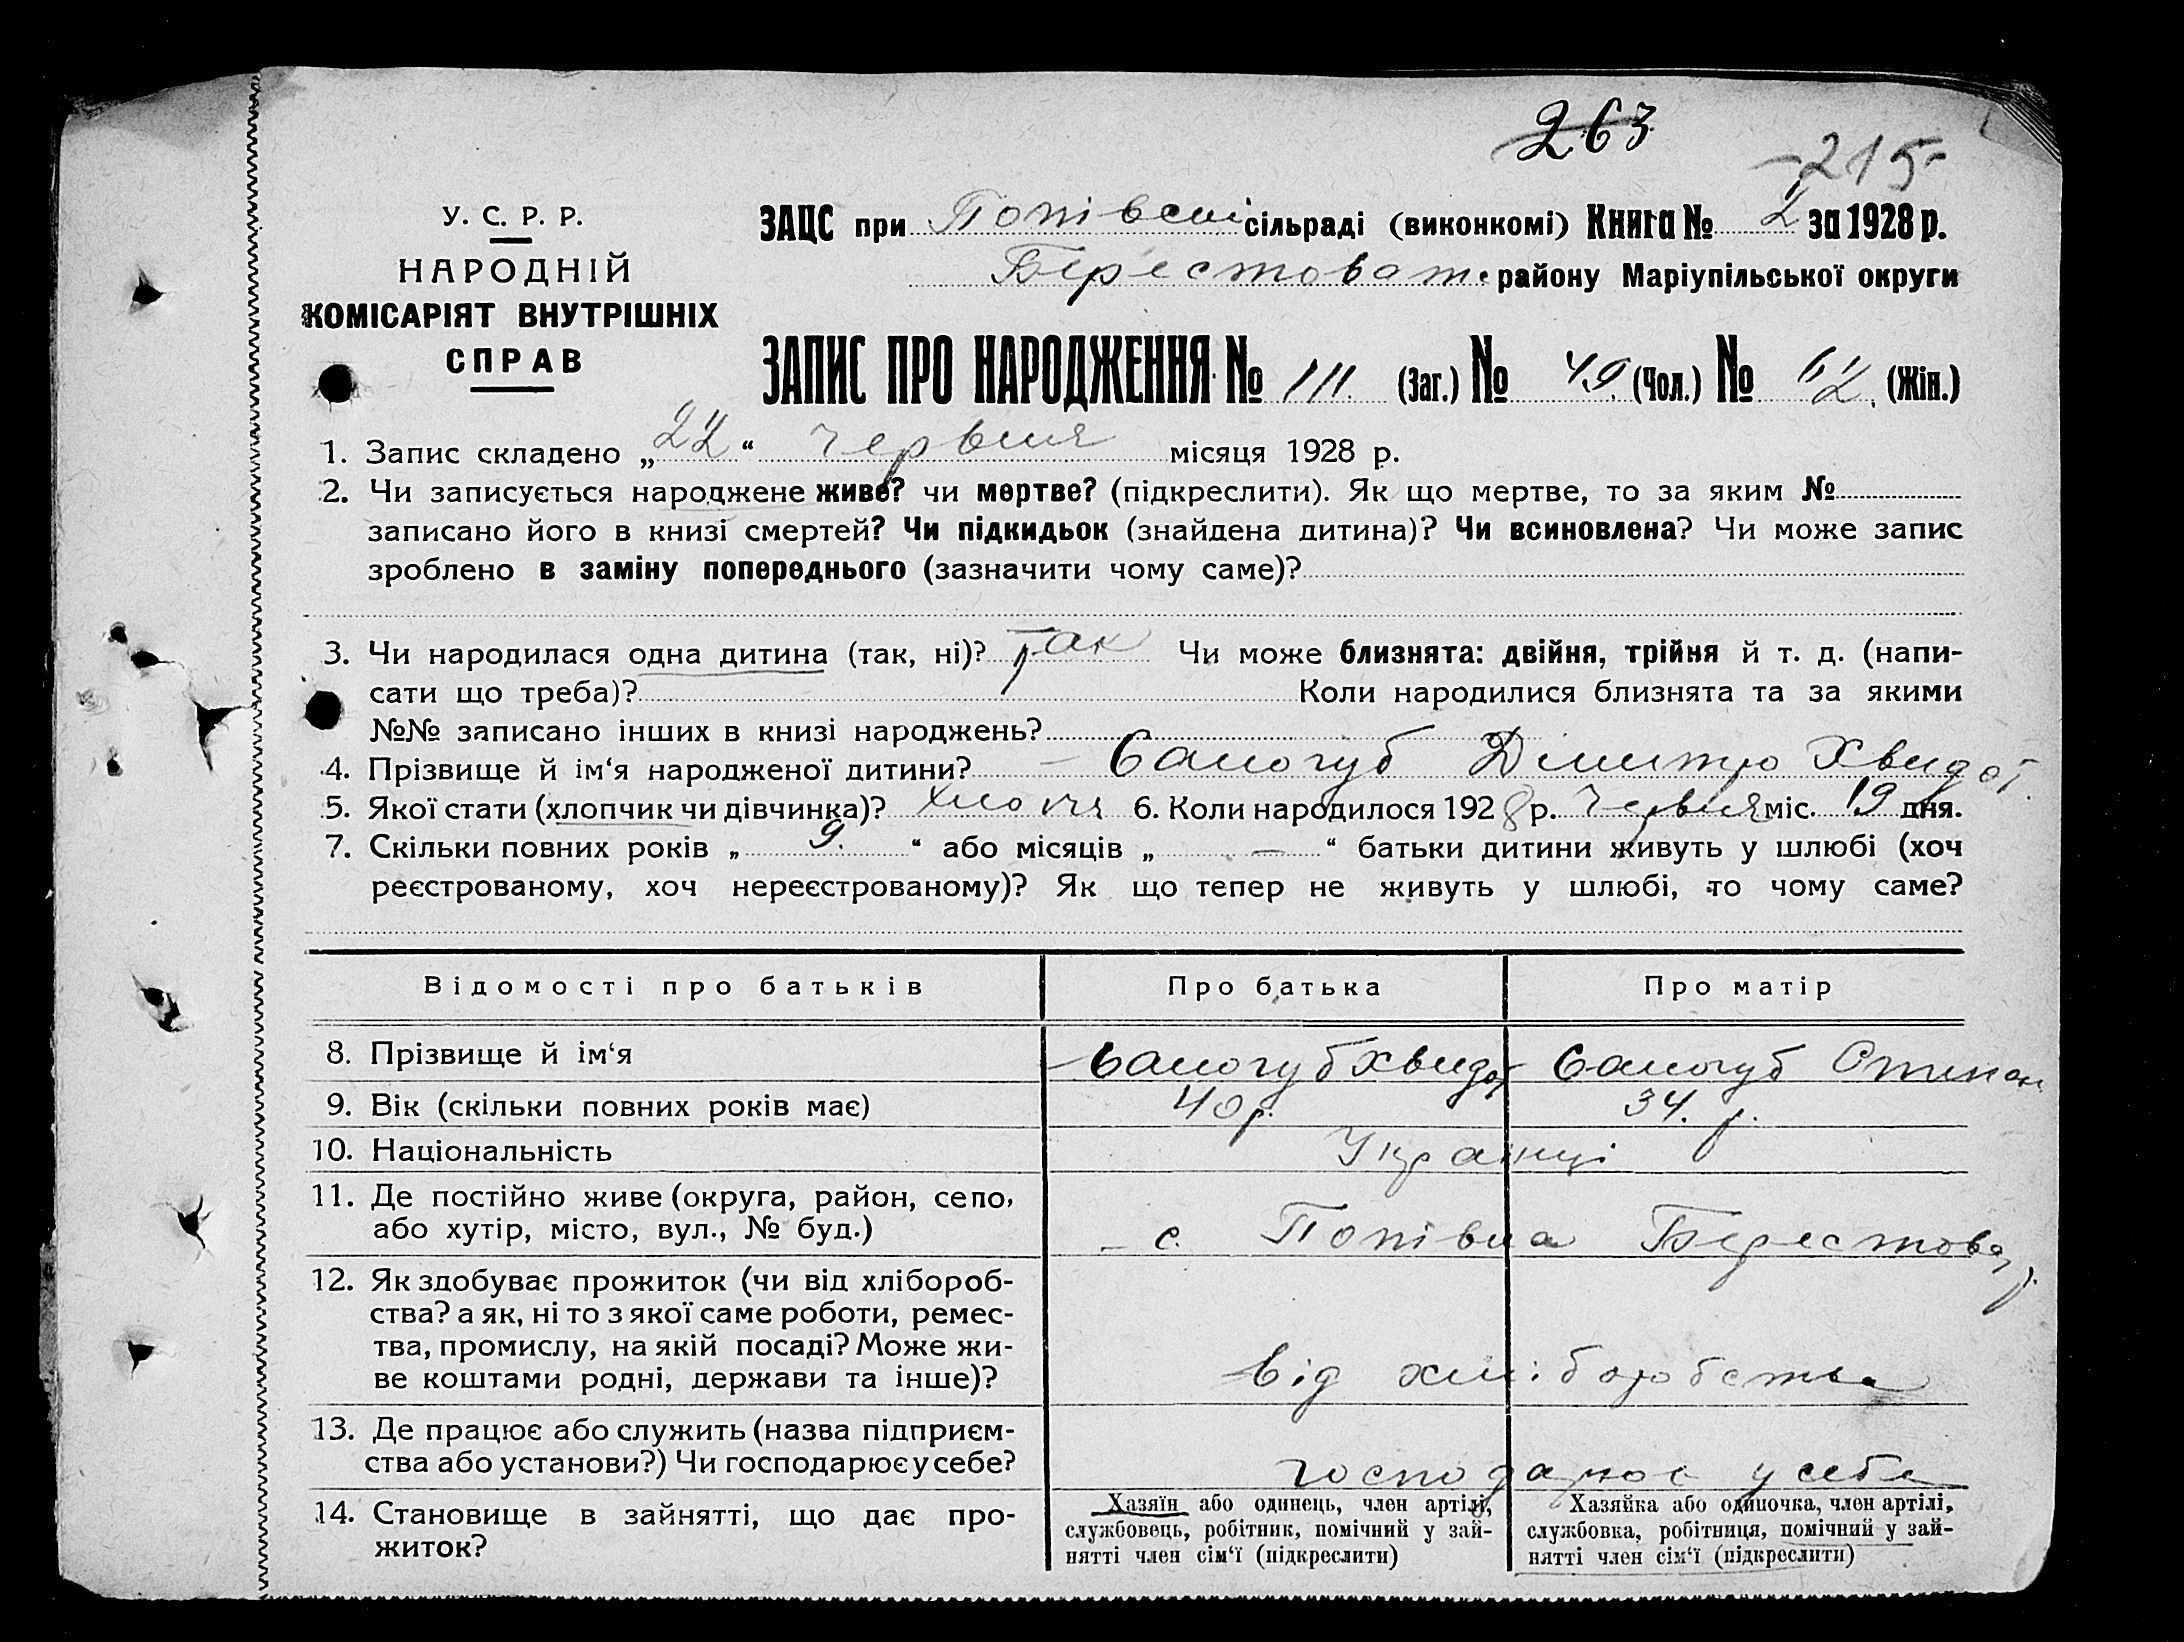 263
-215-
У. С. Р. Р.
НАРОДНІЙ
КОМІСАРІЯТ ВНУТРІШНІХ
СПРАВ
ЗАЦС при Попівські сільраді (виконкомі) Книга № 2 за 1928 р.
Берестоват. району Маріупільської округи
ЗАПИС ПРО НАРОДЖЕННЯ № 111. (Заг.) № 49. (Чол.) № 62. (Жін.)
1. Запис складено „22“ червня місяця 1928 р.
2. Чи записується народжене живе? чи мертве? (підкреслити). Як що мертве, то за яким №
записано його в книзі смертей? Чи підкидьок (знайдена дитина)? Чи всиновлена? Чи може запис
зроблено в заміну попереднього (зазначити чому саме)?
3. Чи народилася одна дитина (так, ні)? так Чи може близнята: двійня, трійня й т. д. (напи-
сати що треба)? Коли народилися близнята та за якими
№№ записано інших в книзі народжень?
4. Прізвище й ім‘я народженої дитини? Самогуб Дімитро Хведот.
5. Якої стати (хлопчик чи дівчинка)? хлопчя 6. Коли народилося 1928 р. червня міс. 19 дня.
7. Скільки повних років „ 9. “ або місяців „ — “ батьки дитини живуть у шлюбі (хоч
реєстрованому, хоч нереєстрованому)? Як що тепер не живуть у шлюбі, то чому саме?
Відомості про батьків Про батька Про матір
8. Прізвище й ім‘я Самогуб Хведот Самогуб Степан
9. Вік (скільки повних років має) 40 р. 34. р.
10. Національність Українці
11. Де постійно живе (округа, район, село,
або хутір, місто, вул., № буд.) - с. Попівка Берестова р.
12. Як здобуває прожиток (чи від хлібороб-
ства? а як, ні то з якої саме роботи, ремес-
тва, промислу, на якій посаді? Може жи-
ве коштами родні, держави та інше)? від хліборобства
13. Де працює або служить (назва підприєм-
ства або установи?) Чи господарює у себе? господарює у себе
14. Становище в зайнятті, що дає про-
житок?
Хазяїн або одинець, член артілі,
службовець, робітник, помічний у зай-
нятті член сім‘ї (підкреслити)
Хазяйка або одиночка, член артілі,
службовка, робітниця, помічний у зай-
нятті член сім‘ї (підкреслити)